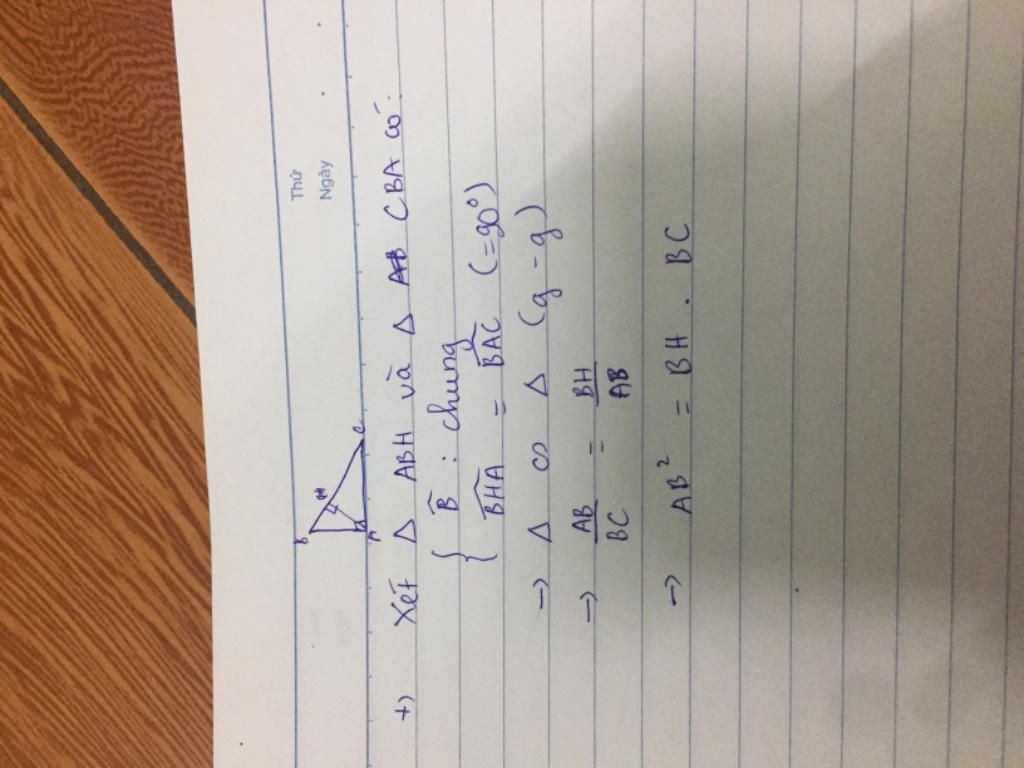 Thứ
Ngày
B
H
A
C
+) Xét Δ ABH và Δ CBA có:
{ B̂ : chung
BHA = BAC (= 90°)
→ Δ ∽ Δ (g - g)
→ AB/BC = BH/AB
→ AB² = BH . BC